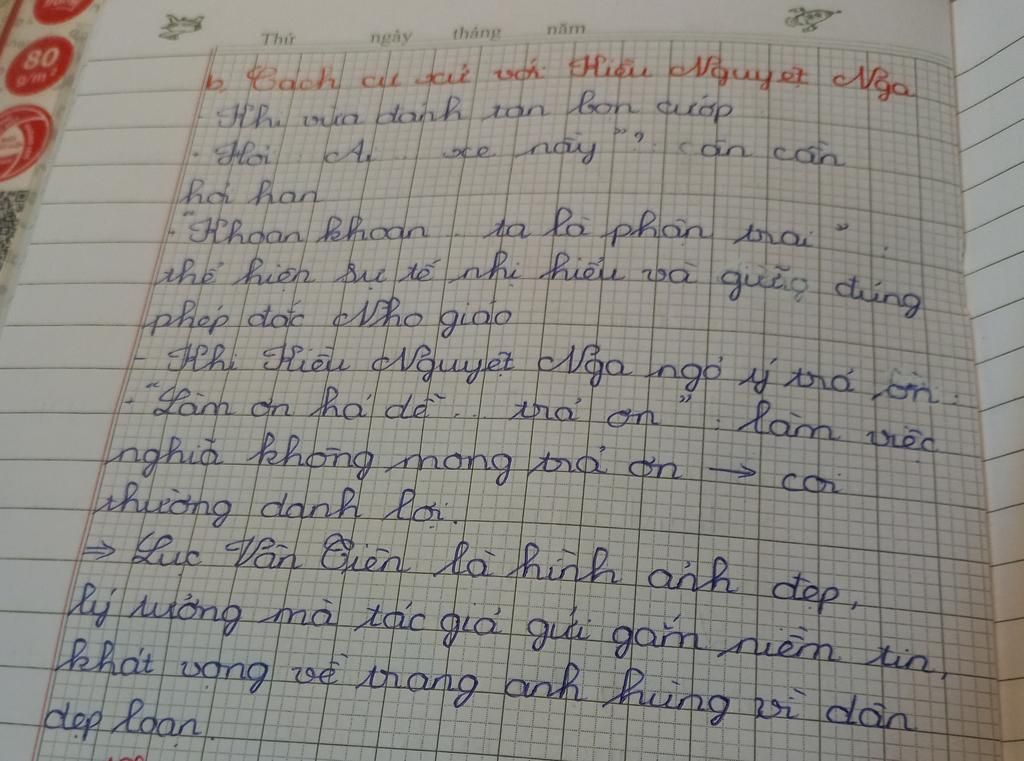 80
g/m²
Thứ ngày tháng năm
b. Cách cư xử với Kiều Nguyệt Nga
- Khi vừa đánh tan bọn cướp
- Hỏi "Ai... xe này"?: ân cần
hỏi han
- "Khoan khoan... ta là phận trai":
thể hiện sự tế nhị hiểu và giữ đúng
phép đốc Nho giáo
- Khi Kiều Nguyệt Nga ngỏ ý trả ơn:
- "Làm ơn há dễ... trả ơn": làm việc
nghĩa không mong trả ơn → coi
thường danh lợi.
⇒ Lục Vân Tiên là hình ảnh đẹp,
lý tưởng mà tác giả gửi gắm niềm tin,
khát vọng về trang anh hùng vì dân
dẹp loạn.